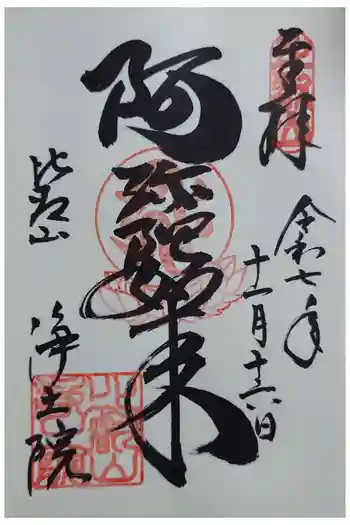 奉拝
令和七年
十一月十六日
阿弥陀如来
比叡山
浄土院